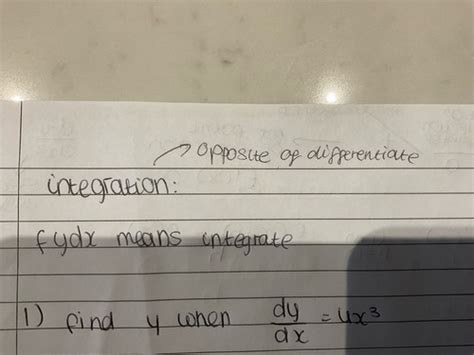 → opposite of differentiate
integration:
∫ydx means integrate
1) find y when dy/dx = 4x³